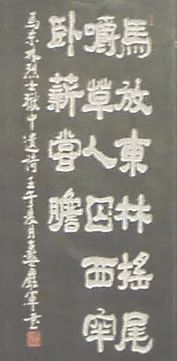 馬放東林搖尾
嚼草人囚西牢
卧薪嘗膽
馬東林烈士獄中遺詩壬午夏月龐軍書